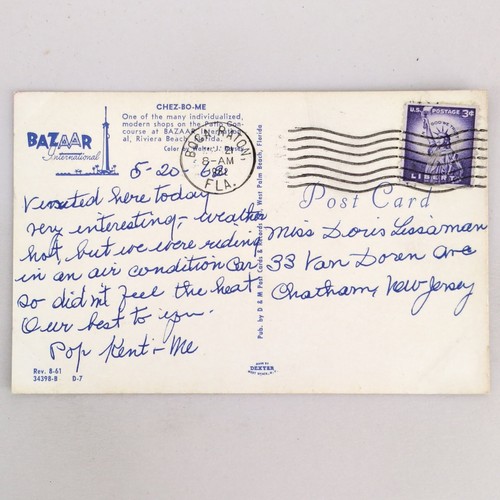 CHEZ-BO-ME
One of the many individualized,
modern shops on the Patio Con-
course at BAZAAR Internation-
al, Riviera Beach, Florida.
Color by
BAZAAR
International
BOCA RATON,
8-AM
FLA.
U.S. POSTAGE 3¢
LIBERTY
5-20-62
Visited here today
very interesting, weather
hot, but we were riding
in an air condition car
so didn't feel the heat
Our best to you.
Pop Kent - Me
Post Card
Miss Doris Lissaman
33 Van Doren Ave
Chatham, New Jersey
Pub. by D & M Post Cards & Records West Palm Beach, Florida
Rev. 8-61
34398-B D-7
MADE BY
DEXTER
WEST NYACK, N.Y.